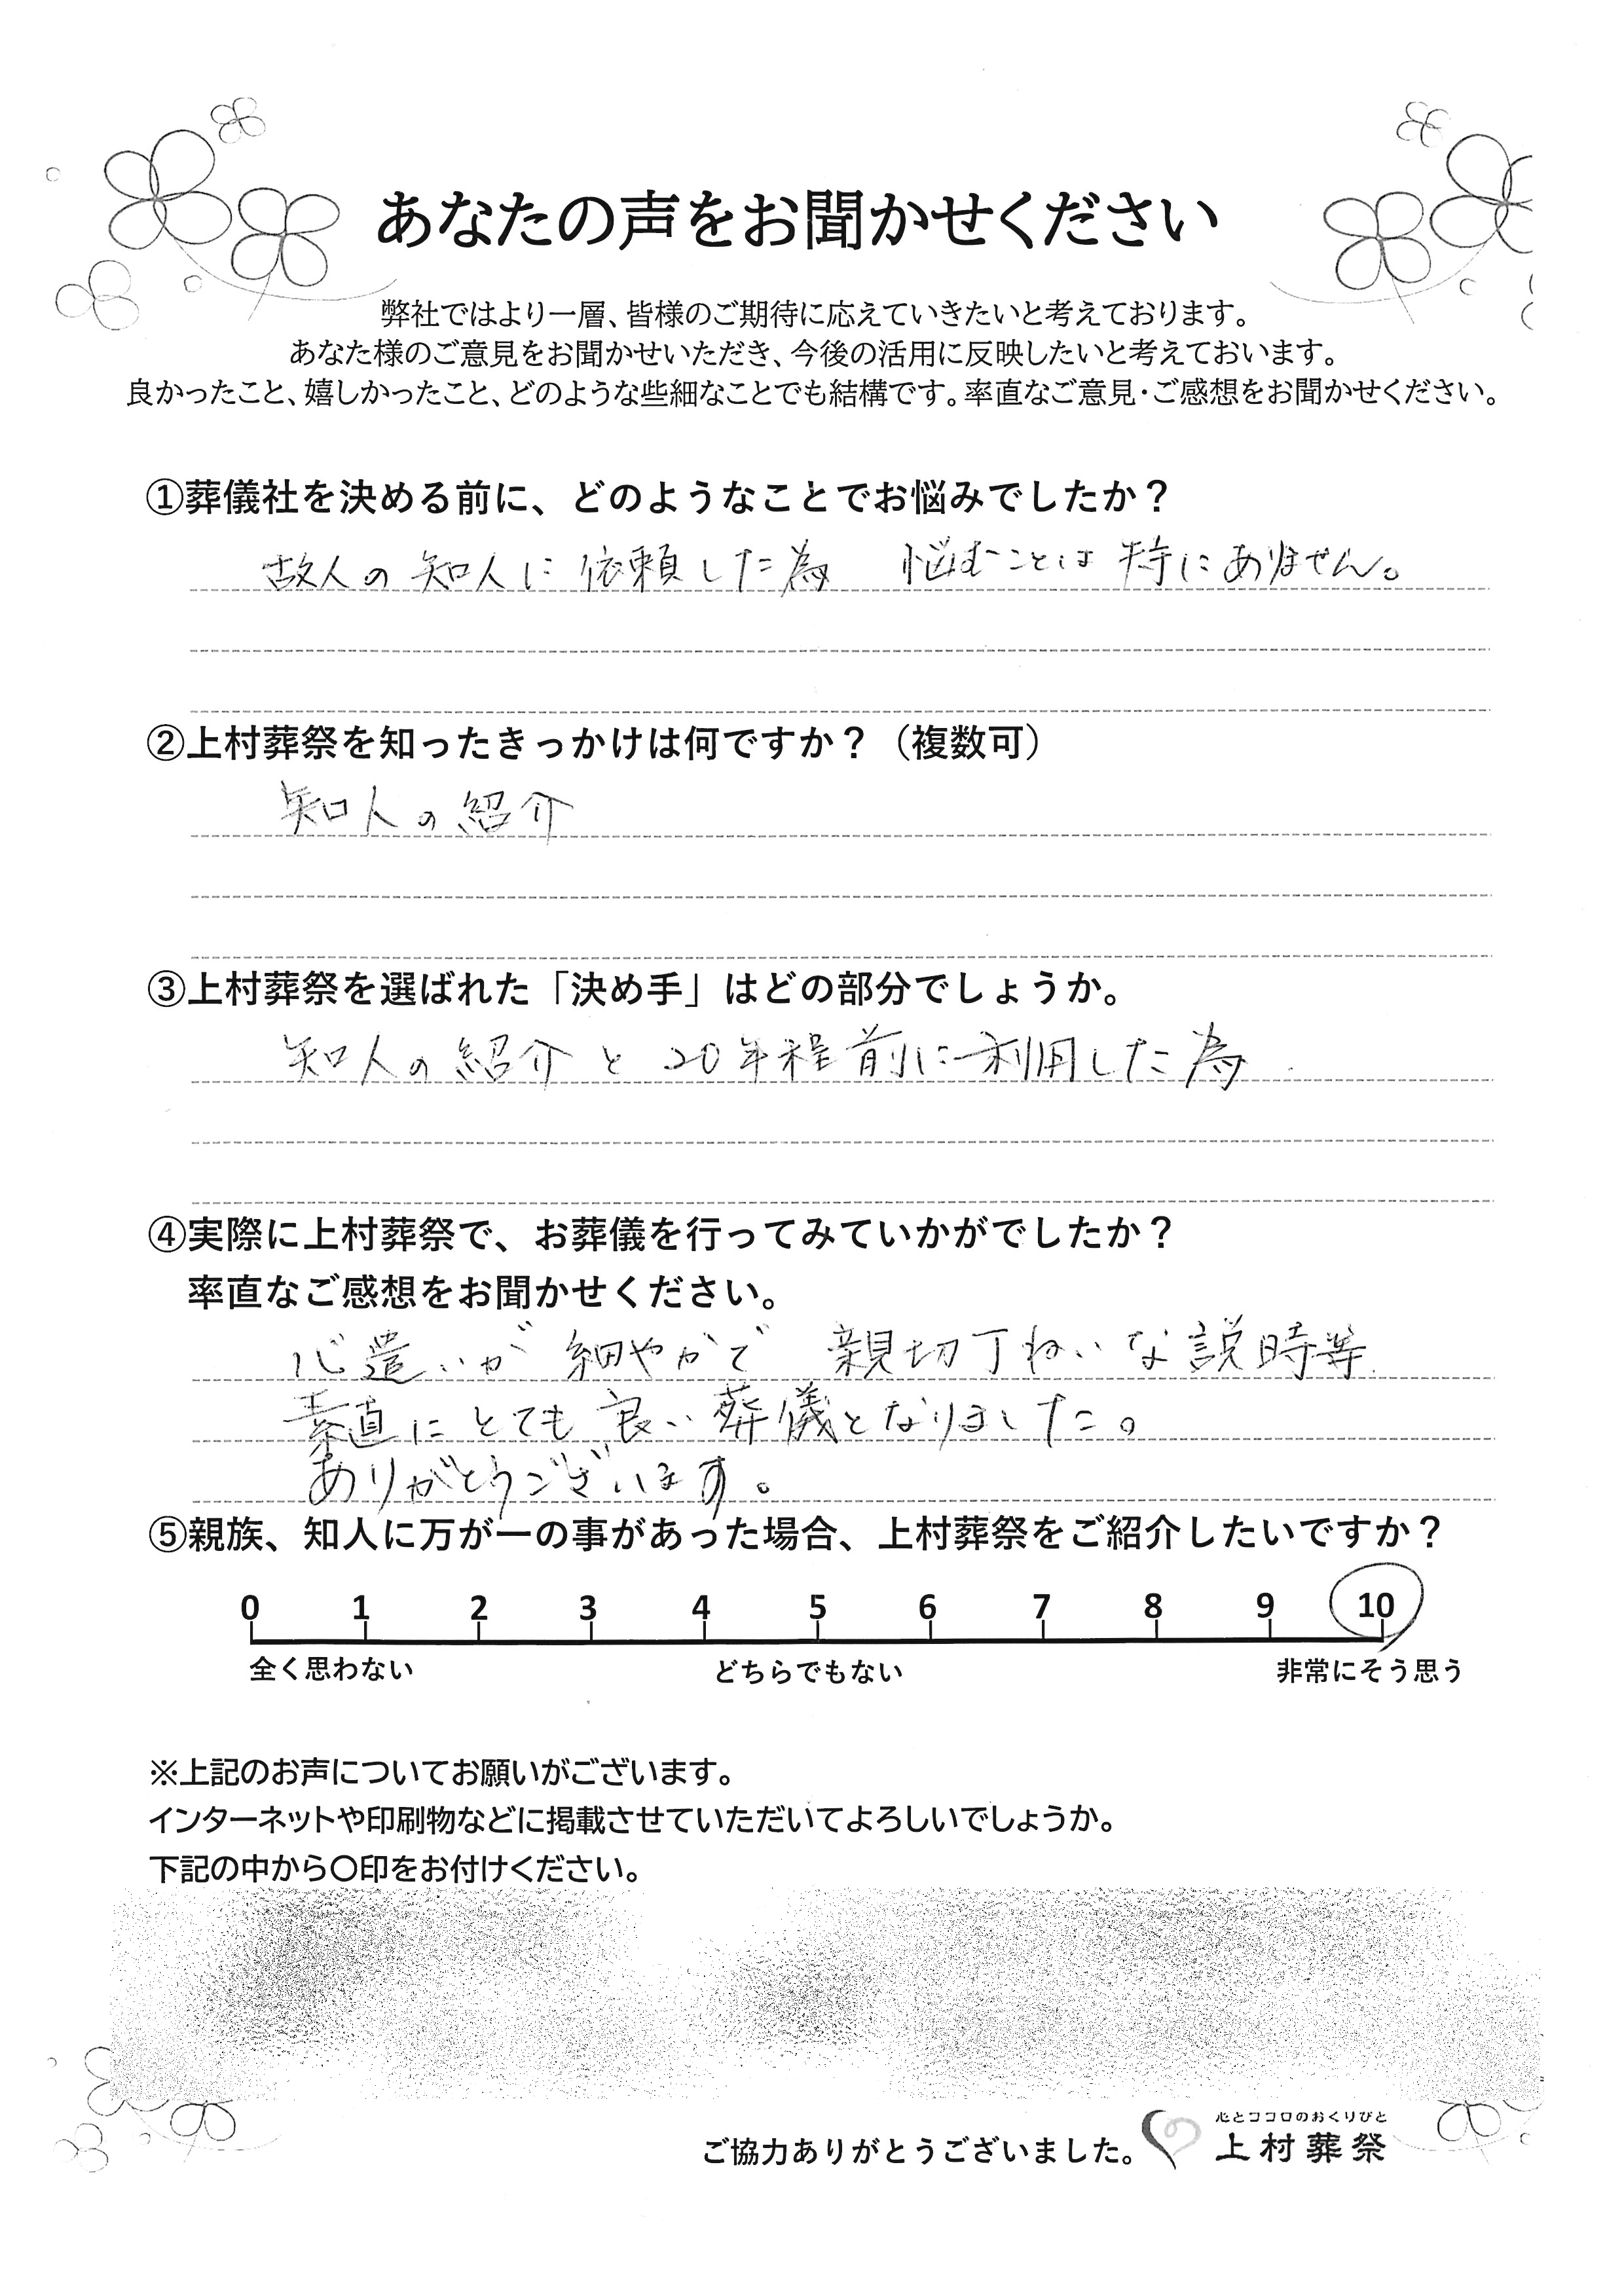 あなたの声をお聞かせください
弊社ではより一層、皆様のご期待に応えていきたいと考えております。
あなた様のご意見をお聞かせいただき、今後の活用に反映したいと考えておいます。
良かったこと、嬉しかったこと、どのような些細なことでも結構です。率直なご意見・ご感想をお聞かせください。
①葬儀社を決める前に、どのようなことでお悩みでしたか？
故人の知人に依頼した為 悩むことは特にありません。
②上村葬祭を知ったきっかけは何ですか？（複数可）
知人の紹介
③上村葬祭を選ばれた「決め手」はどの部分でしょうか。
知人の紹介と20年程前に利用した為
④実際に上村葬祭で、お葬儀を行ってみていかがでしたか？
率直なご感想をお聞かせください。
心遣いが細やかで 親切丁ねいな説時等
素直にとても良い葬儀となりました。
ありがとうございます。
⑤親族、知人に万が一の事があった場合、上村葬祭をご紹介したいですか？
0 1 2 3 4 5 6 7 8 9 10
全く思わない どちらでもない 非常にそう思う
※上記のお声についてお願いがございます。
インターネットや印刷物などに掲載させていただいてよろしいでしょうか。
下記の中から〇印をお付けください。
心とココロのおくりびと
ご協力ありがとうございました。 上村葬祭